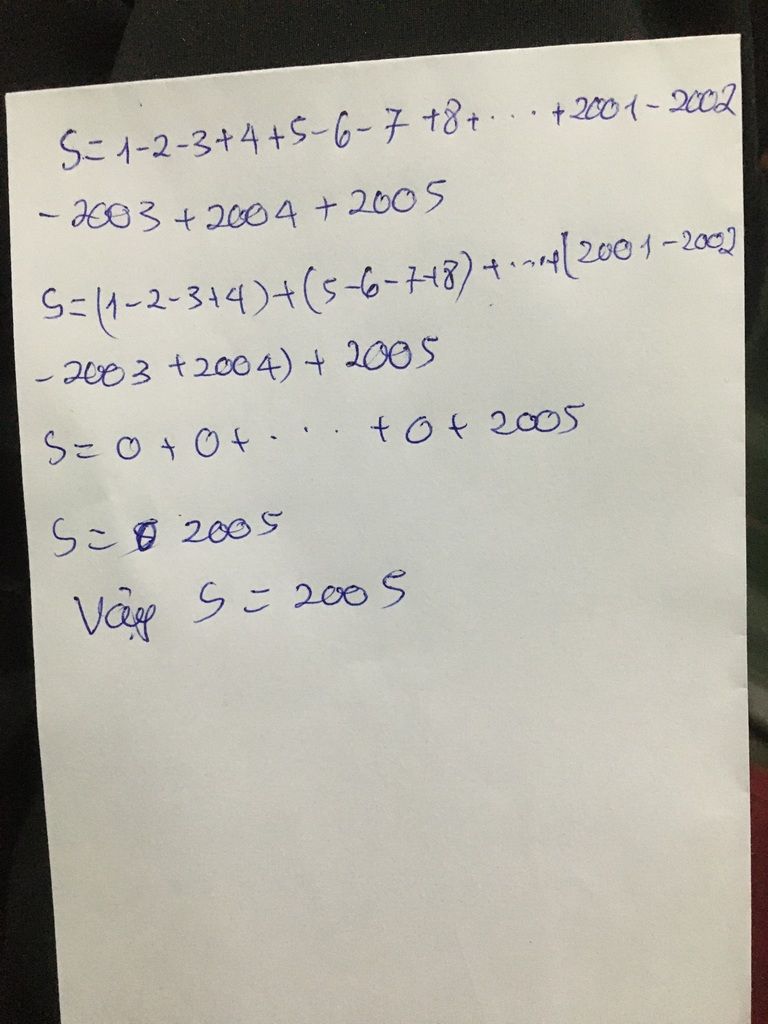 S=1-2-3+4+5-6-7+8+...+2001-2002
-2003+2004+2005
S=(1-2-3+4)+(5-6-7+8)+...+(2001-2002
-2003+2004)+2005
S=0+0+....+0+2005
S= 2005
Vậy S=2005